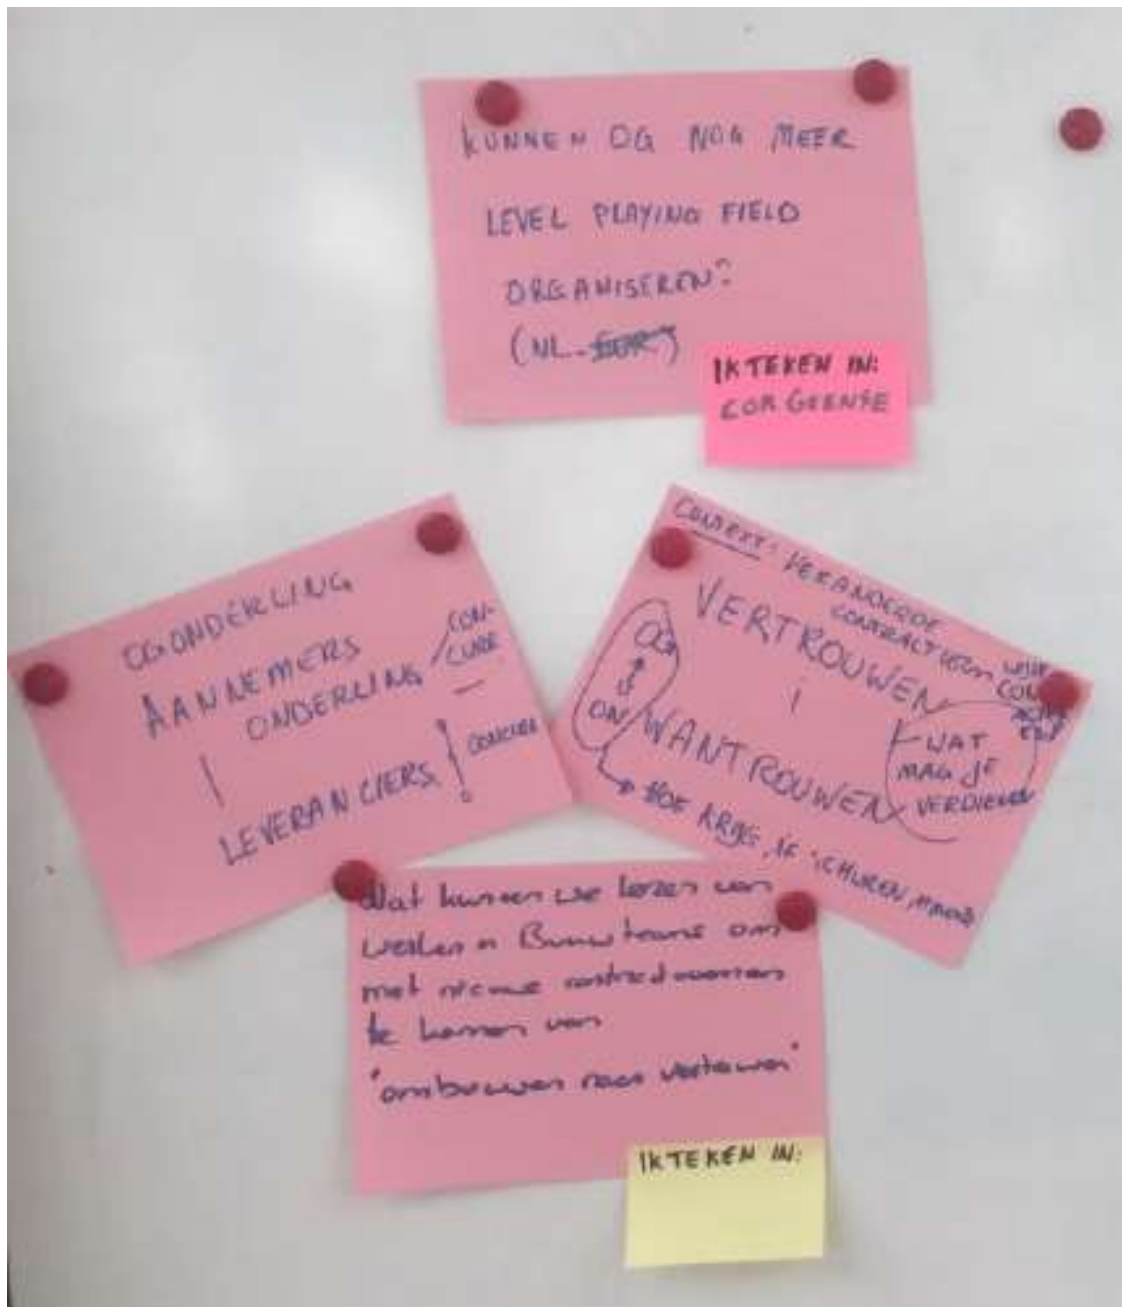 KUNNEN OG NOG MEER
LEVEL PLAYING FIELD
ORGANISEREN?
(NL. EUR)
IK TEKEN IN:
COR GEENSE
OG ONDERLING
AANNEMERS
ONDERLING
CON-
CURR
LEVERANCIERS
CONTEXT: VERANDERDE
CONTRACT
VERTROUWEN
OG
ON
WANTROUWEN
WAT
MAG JE
VERDIENEN
HOE KRIJG JE
Wat kunnen we leren van
werken in Bouwteams om
met nieuwe contractvormen
te komen van
"ombouwen naar vertrouwen"
IK TEKEN IN: